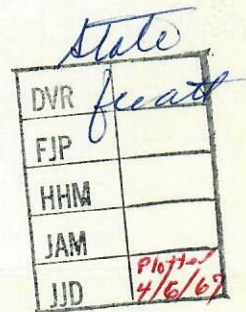 State
DVR
FJP
HHM
JAM
JJD Plotted
4/6/67